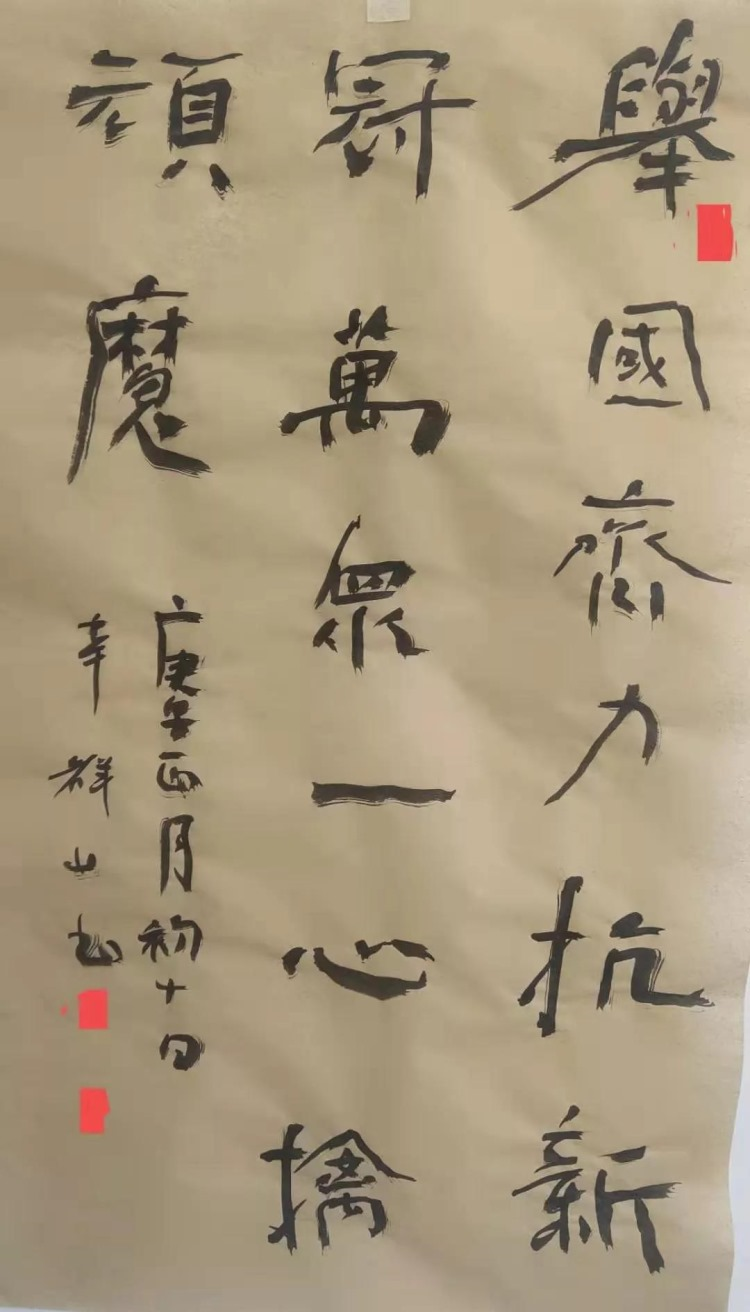 舉國齊力抗新
冠萬衆一心擒
頑魔
庚子正月初十日
幸群山书